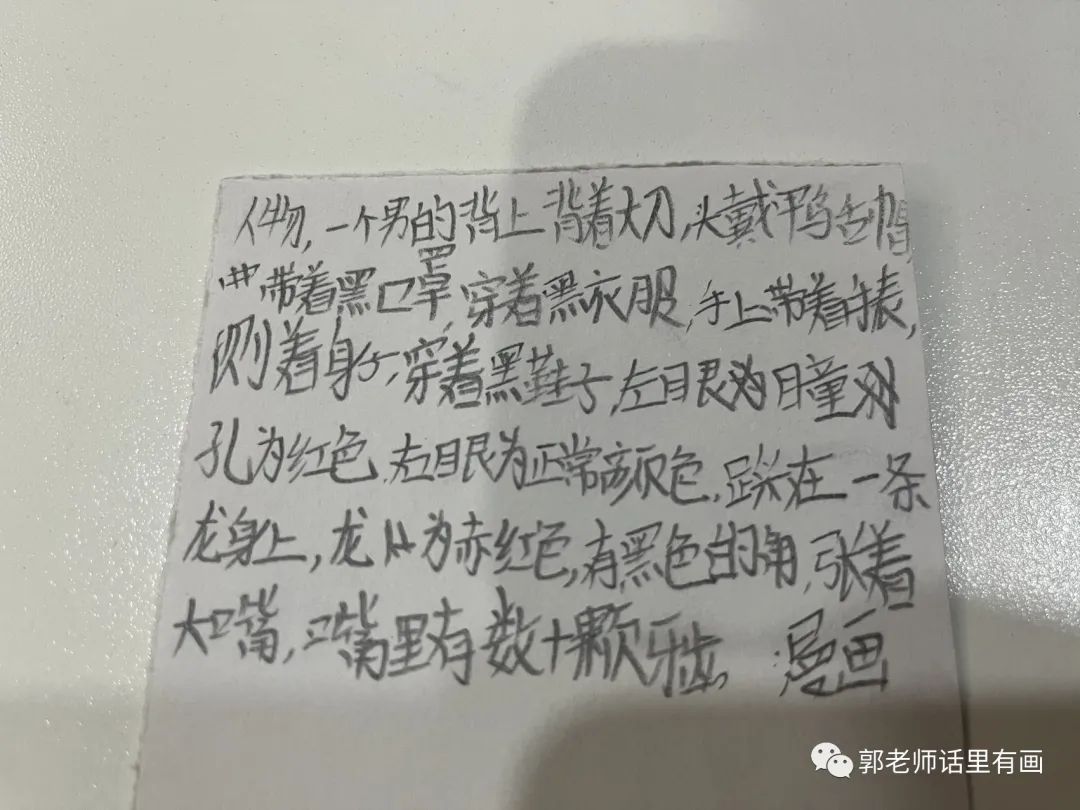 人物,一个男的背上背着大刀,头戴鸭舌帽
带着黑口罩,穿着黑衣服,手上带着手表,
侧着身子,穿着黑鞋子,左目艮为瞳
孔为红色,右眼为正常颜色,踩在一条
龙身上,龙为赤红色,有黑色的角,张着
大口嘴,口嘴里有数十颗牙齿 漫画
郭老师话里有画